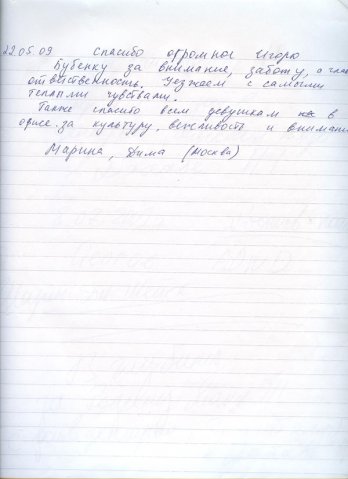 22.05.09 Спасибо огромное Игорю
Бубенку за внимание, заботу, о
ответственность. Уезжаем с самыми
теплыми чувствами.
Также спасибо всем девушкам в
офисе за культуру, вежливость и внимани
Марина, Дима (Москва)